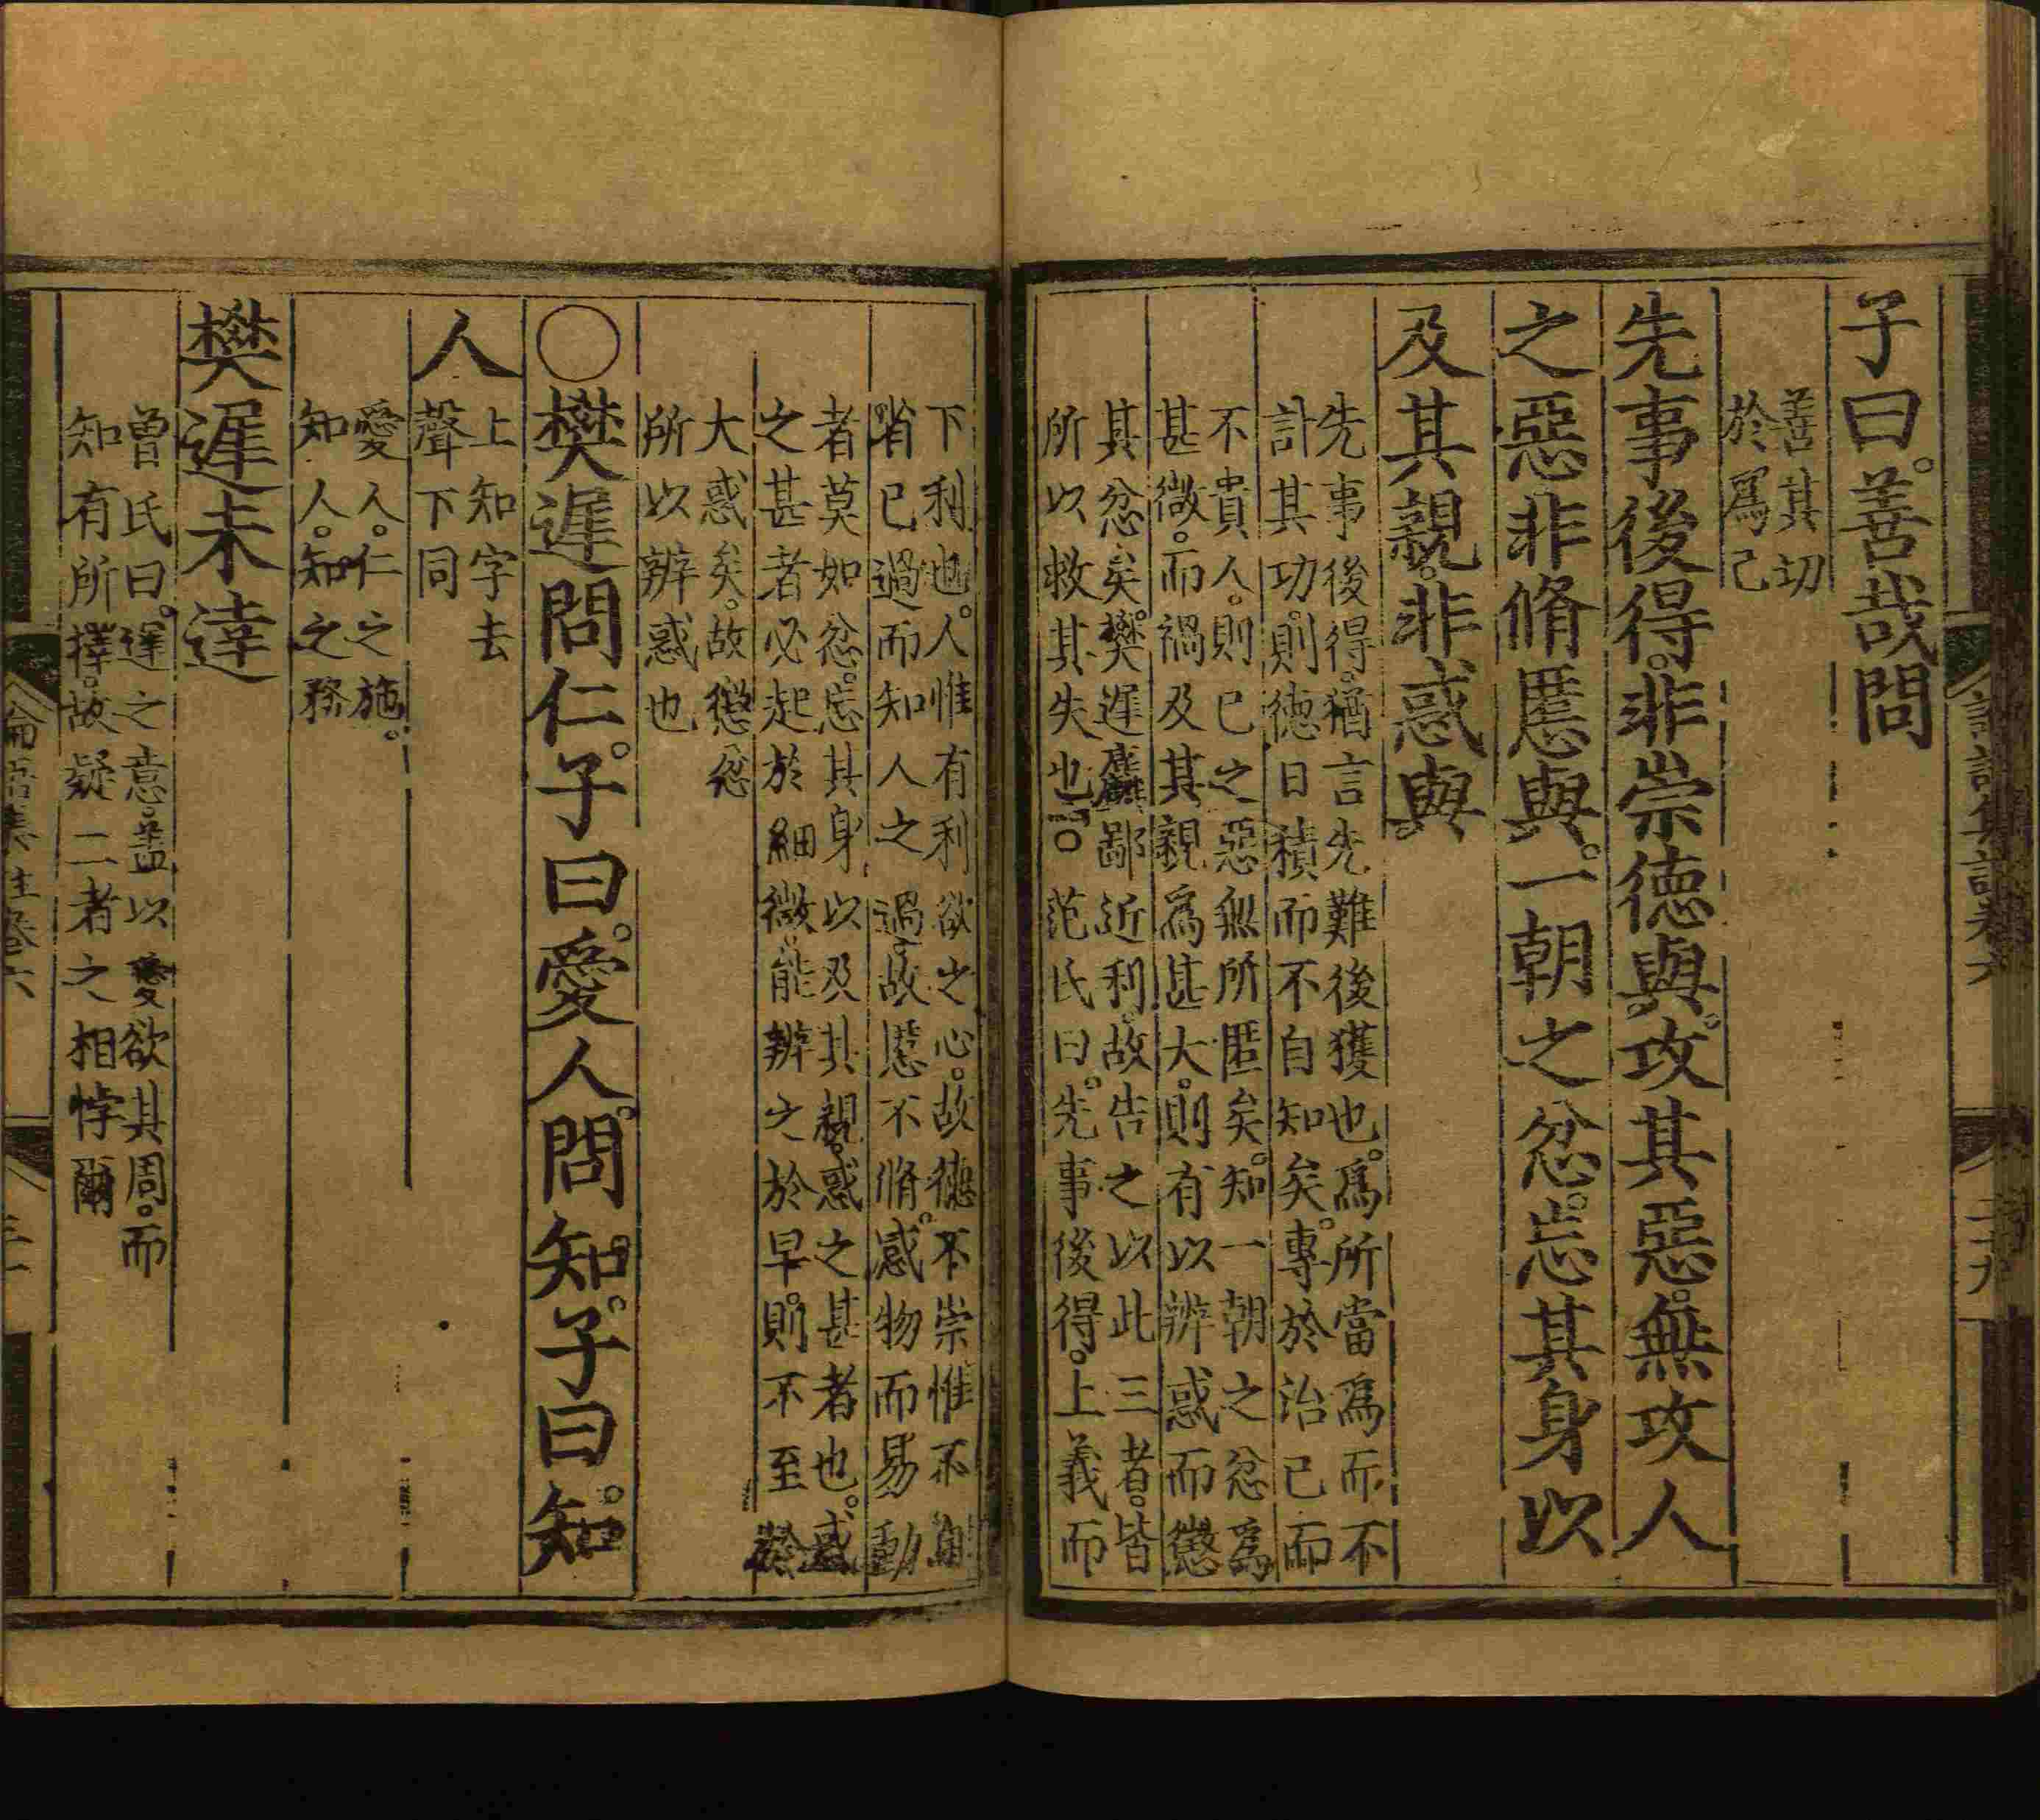 子曰善哉問
善其切
於爲己
先事後得非崇德與攻其惡無攻人
之惡非脩慝與一朝之忿忘其身以
及其親非惑與
先事後得猶言先難後獲也爲所當爲而不
計其功則德日積而不自知矣專於治己而
不責人則己之惡無所匿矣知一朝之忿爲
甚微而禍及其親爲甚大則有以辨惑而懲
其忿矣樊遲麤鄙近利故告之以此三者皆
所以救其失也○范氏曰先事後得上義而
下利也人惟有利欲之心故德不崇惟不自
省己過而知人之過故慝不脩感物而易動
者莫如忿忘其身以及其親惑之甚者也惑
之甚者必起於細微能辨之於早則不至於
大惑矣故懲忿
所以辨惑也
○樊遲問仁子曰愛人問知子曰知
人
上知字去
聲下同
愛人仁之施
知人知之務
樊遲未達
曾氏曰遲之意蓋以愛欲其周而
知有所擇故疑二者之相悖爾